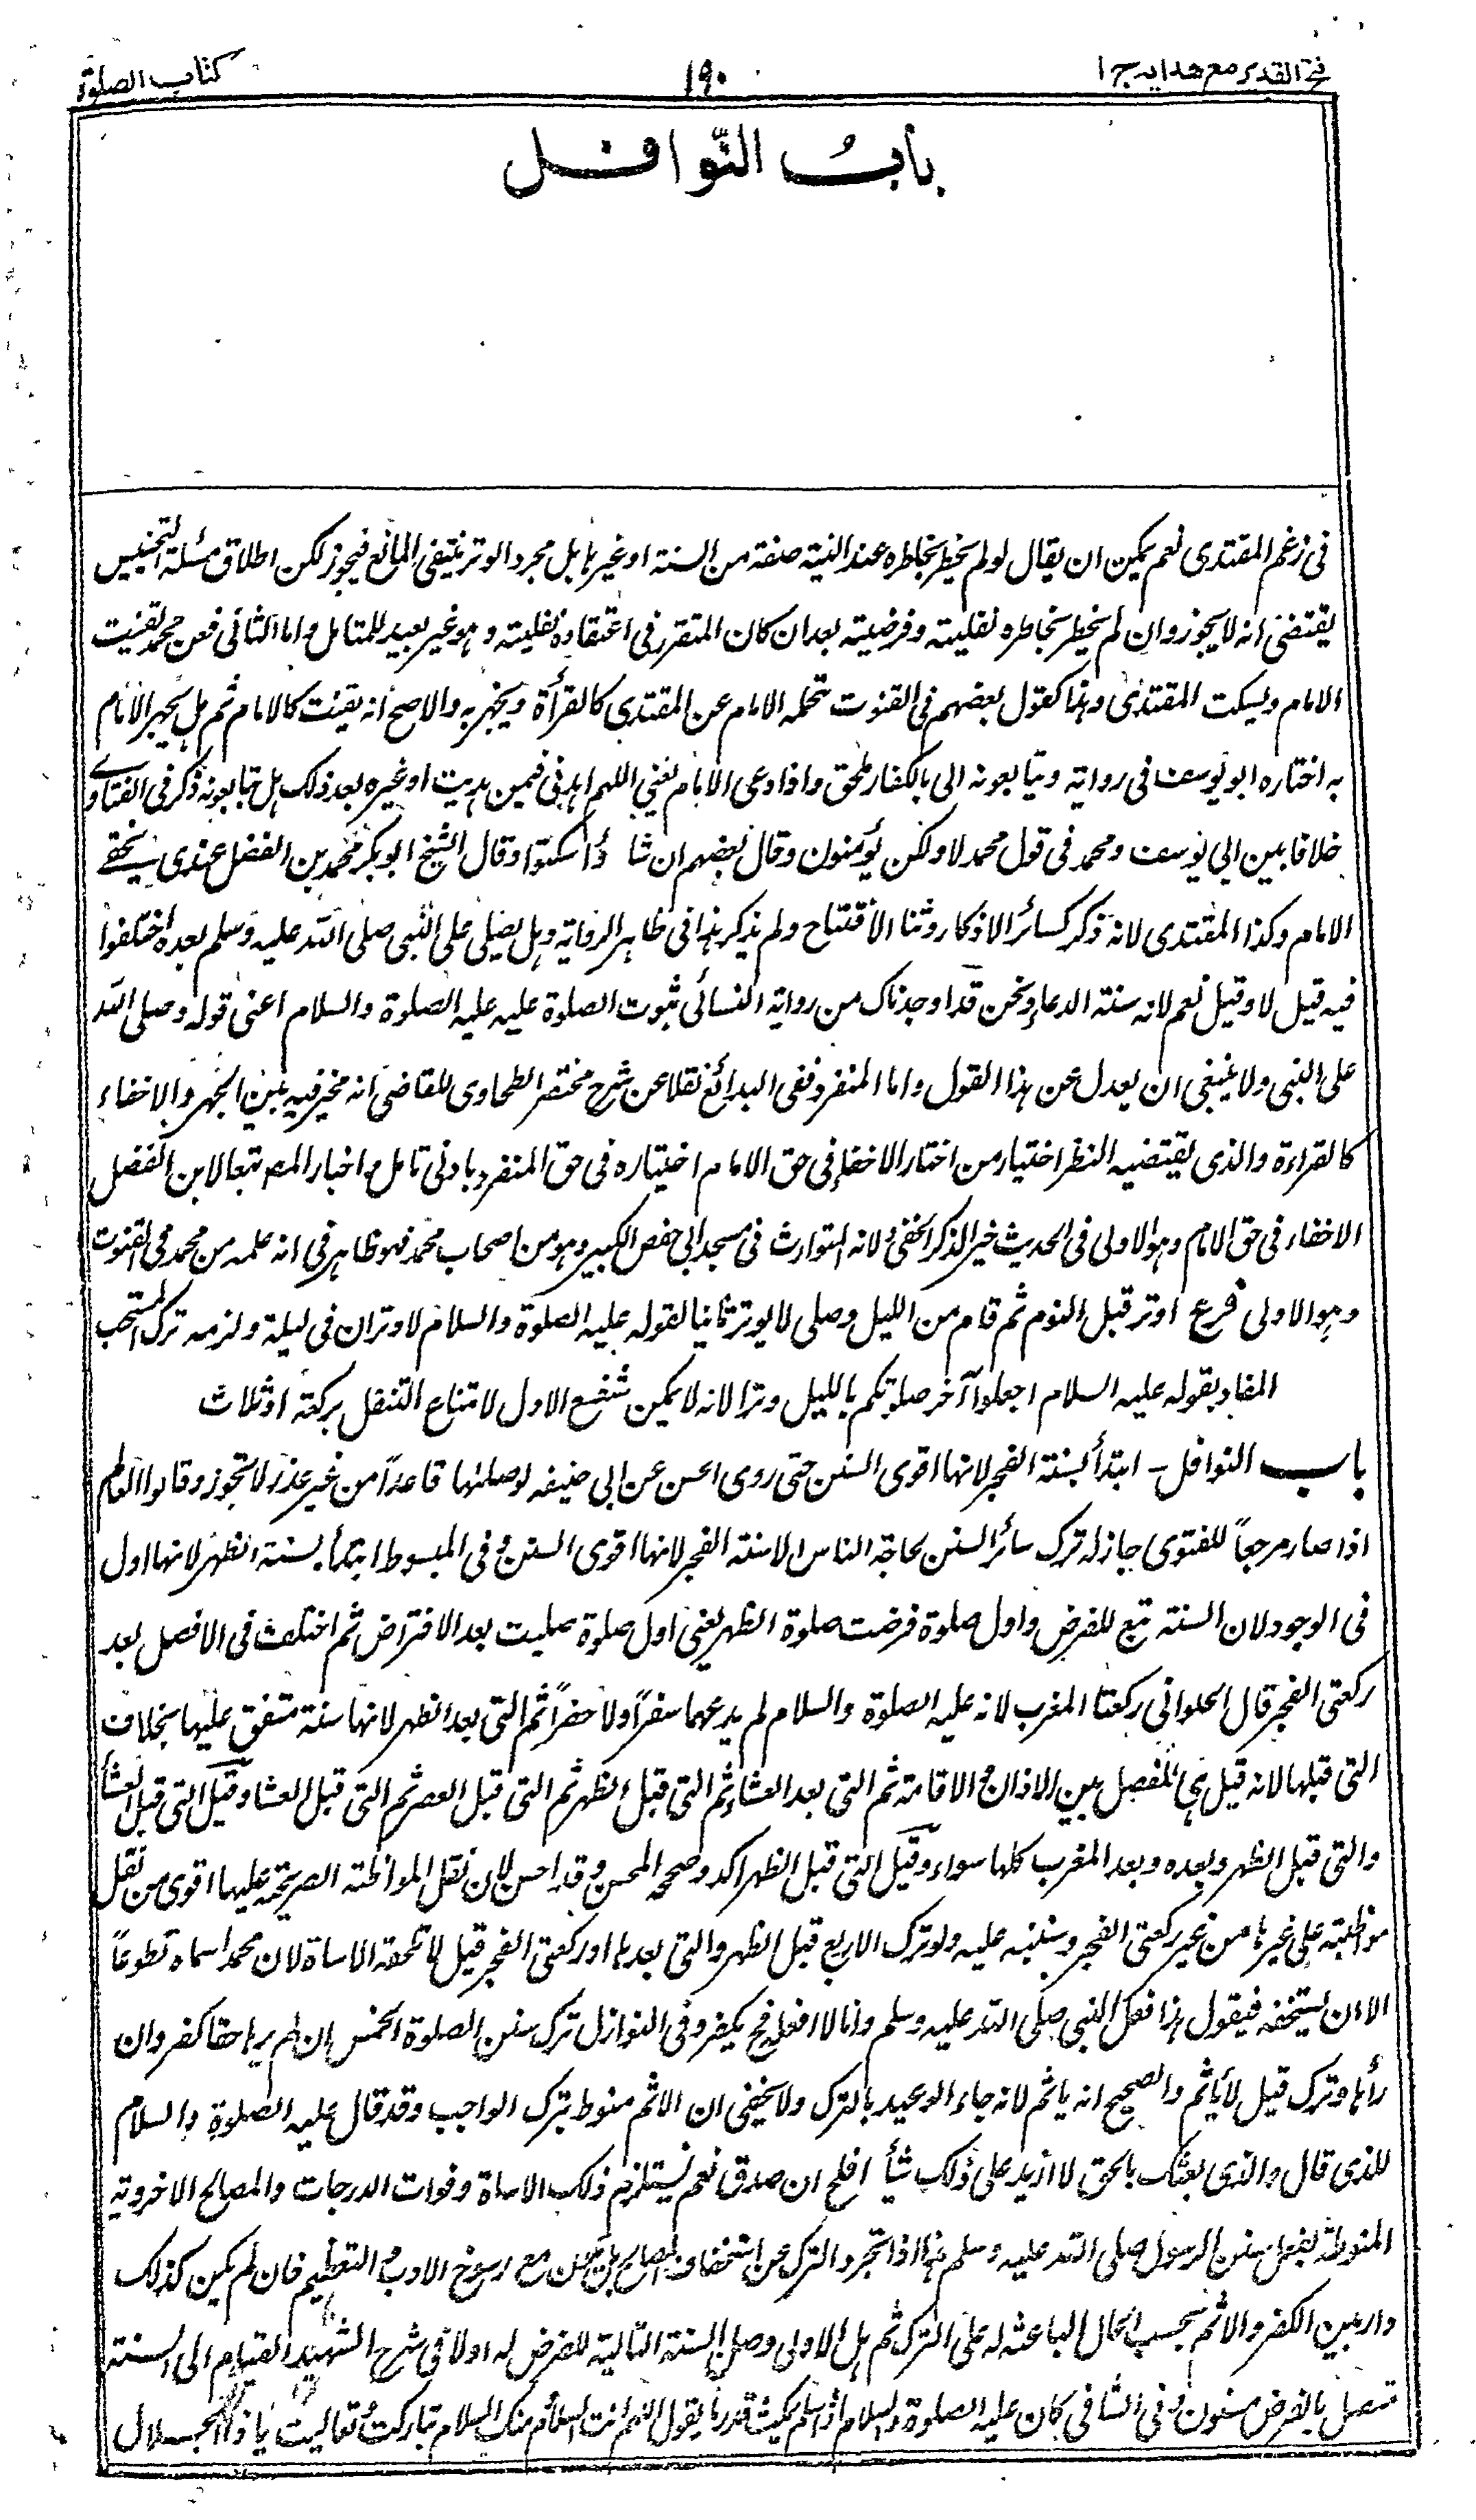 فتح القدير مع هدايه ج ١
١٩٠
كتاب الصلوة
بابُ النّوافل
فى زعم المقتدى نعم يمكن ان يقال لو لم يخطر بخاطره عند النية صفة من السنة او غيرها بل مجرد الوتر ينتفى المانع فيجوز لكن اطلاق مسئلة التجنيس
يقتضى انه لا يجوز وان لم يخطر بخاطره نفليته وفرضيته بعد ان كان المتقرر فى اعتقاده نفليته وهو غير بعيد للمتامل واما الثانى فعن محمد يقنت
الامام ويسكت المقتدى وهذا كقول بعضهم فى القنوت تحمله الامام عن المقتدى كالقرأة ويجهر به والاصح انه يقنت كالامام ثم هل يجهر الامام
به اختاره ابو يوسف فى رواية ويتابعونه الى بالكفار ملحق واذا دعى الامام يعنى اللهم اهدنى فيمن هديت او غيره بعد ذلك هل يتابعونه ذكر فى الفتاوے
خلافا بين ابى يوسف ومحمد فى قول محمد لا ولكن يؤمنون وقال بعضهم ان شاؤا سكتوا وقال الشيخ ابو بكر محمد بن الفضل عندى يخفے
الامام وكذا المقتدى لانه ذكر كسائر الاذكار وثنا الافتتاح ولم يذكر هذا فى ظاهر الرواية وهل يصلى على النبى صلى الله عليه وسلم بعده اختلفوا
فيه قيل لا وقيل نعم لانه سنة الدعاء ونحن قد اوجدناك من رواية النسائى ثبوت الصلوة عليه عليه الصلوة والسلام اعنى قوله وصلى الله
على النبى ولا ينبغى ان يعدل عن هذا القول واما المنفرد ففى البدائع نقلا عن شرح مختصر الطحاوى للقاضى انه مخير فيه بين الجهر والاخفاء
كالقراءة والذى يقتضيه النظر اختيار من اختار الاخفاء فى حق الامام اختياره فى حق المنفرد بادنى تامل واختار المصـ تبعا لابن الفضل
الاخفاء فى حق الامام وهو الاولى فى الحديث خير الذكر الخفى ولانه المتوارث فى مسجد ابى حفص الكبير وهو من اصحاب محمد فهو ظاهر فى انه علمه من محمد فى القنوت
وهو الاولى فرع اوتر قبل النوم ثم قام من الليل وصلى لا يوتر ثانيا لقوله عليه الصلوة والسلام لا وتران فى ليلة ولزمه ترك المستحب
المفاد بقوله عليه السلام اجعلوا آخر صلوتكم بالليل وترا لانه لا يمكن شفع الاول لامتناع التنفل بركعة او ثلاث
باب النوافل - ابتدأ بسنة الفجر لانها اقوى السنن حتى روى الحسن عن ابى حنيفه لو صلاها قاعداً من غير عذر لا تجوز وقالوا العالم
اذا صار مرجعاً للفتوى جاز له ترك سائر السنن لحاجة الناس الا سنة الفجر لانها اقوى السنن وفى المبسوط ابتدأ بسنة الظهر لانها اول
فى الوجود لان السنة تبع للفرض واول صلوة فرضت صلوة الظهر يعنى اول صلوة صليت بعد الافتراض ثم اختلف فى الافضل بعد
ركعتى الفجر قال الحلوانى ركعتا المغرب لانه عليه الصلوة والسلام لم يدعهما سفراً ولا حضراً ثم التى بعد الظهر لانها سنة متفق عليها بخلاف
التى قبلها لانه قيل هى للفصل بين الاذان والاقامة ثم التى بعد العشاء ثم التى قبل الظهر ثم التى قبل العصر ثم التى قبل العشا وقيل التى قبل العشأ
والتى قبل الظهر وبعده وبعد المغرب كلها سواء وقيل التى قبل الظهر اكد وصححه المحسن وقد احسن لان نقل المواظبة الصريحة عليها اقوى من نقل
مواظبته على غيرها من غير ركعتى الفجر وسننبه عليه ولو ترك الاربع قبل الظهر والتى بعدها او ركعتى الفجر قيل لا تلحقه الاساة لان محمدا سماه تطوعاً
الا ان يستخفه فيقول هذا فعل النبى صلى الله عليه وسلم وانا لا افعله فح يكفر وفى النوازل ترك سنن الصلوة الخمس ان لم يرها حقا كفر وان
رأها وترك قيل لا ياثم والصحيح انه ياثم لانه جاء الوعيد بالترك ولا يخفى ان الاثم منوط بترك الواجب وقد قال عليه الصلوة والسلام
للذى قال والذى بعثك بالحق لا ازيد على ذلك شيأ افلح ان صدق نعم يستلزم ذلك الاساة وفوات الدرجات والمصالح الاخروية
المنوطة بفعل سنن الرسول صلى الله عليه وسلم هذا اذا تجرد الترك عن استخفاف بل يكون مع رسوخ الادب والتعظيم فان لم يكن كذلك
دار بين الكفر والاثم بحسب الحال الباعثة له على الترك ثم هل الاولى وصل السنة التالية للفرض له اولا فى شرح الشهيد القيام الى السنة
متصل بالفرض مسنون وفى الشافى كان عليه الصلوة والسلام اذا سلم يمكث قدر ما يقول اللهم انت السلام ومنك السلام تباركت وتعاليت يا ذا الجلال